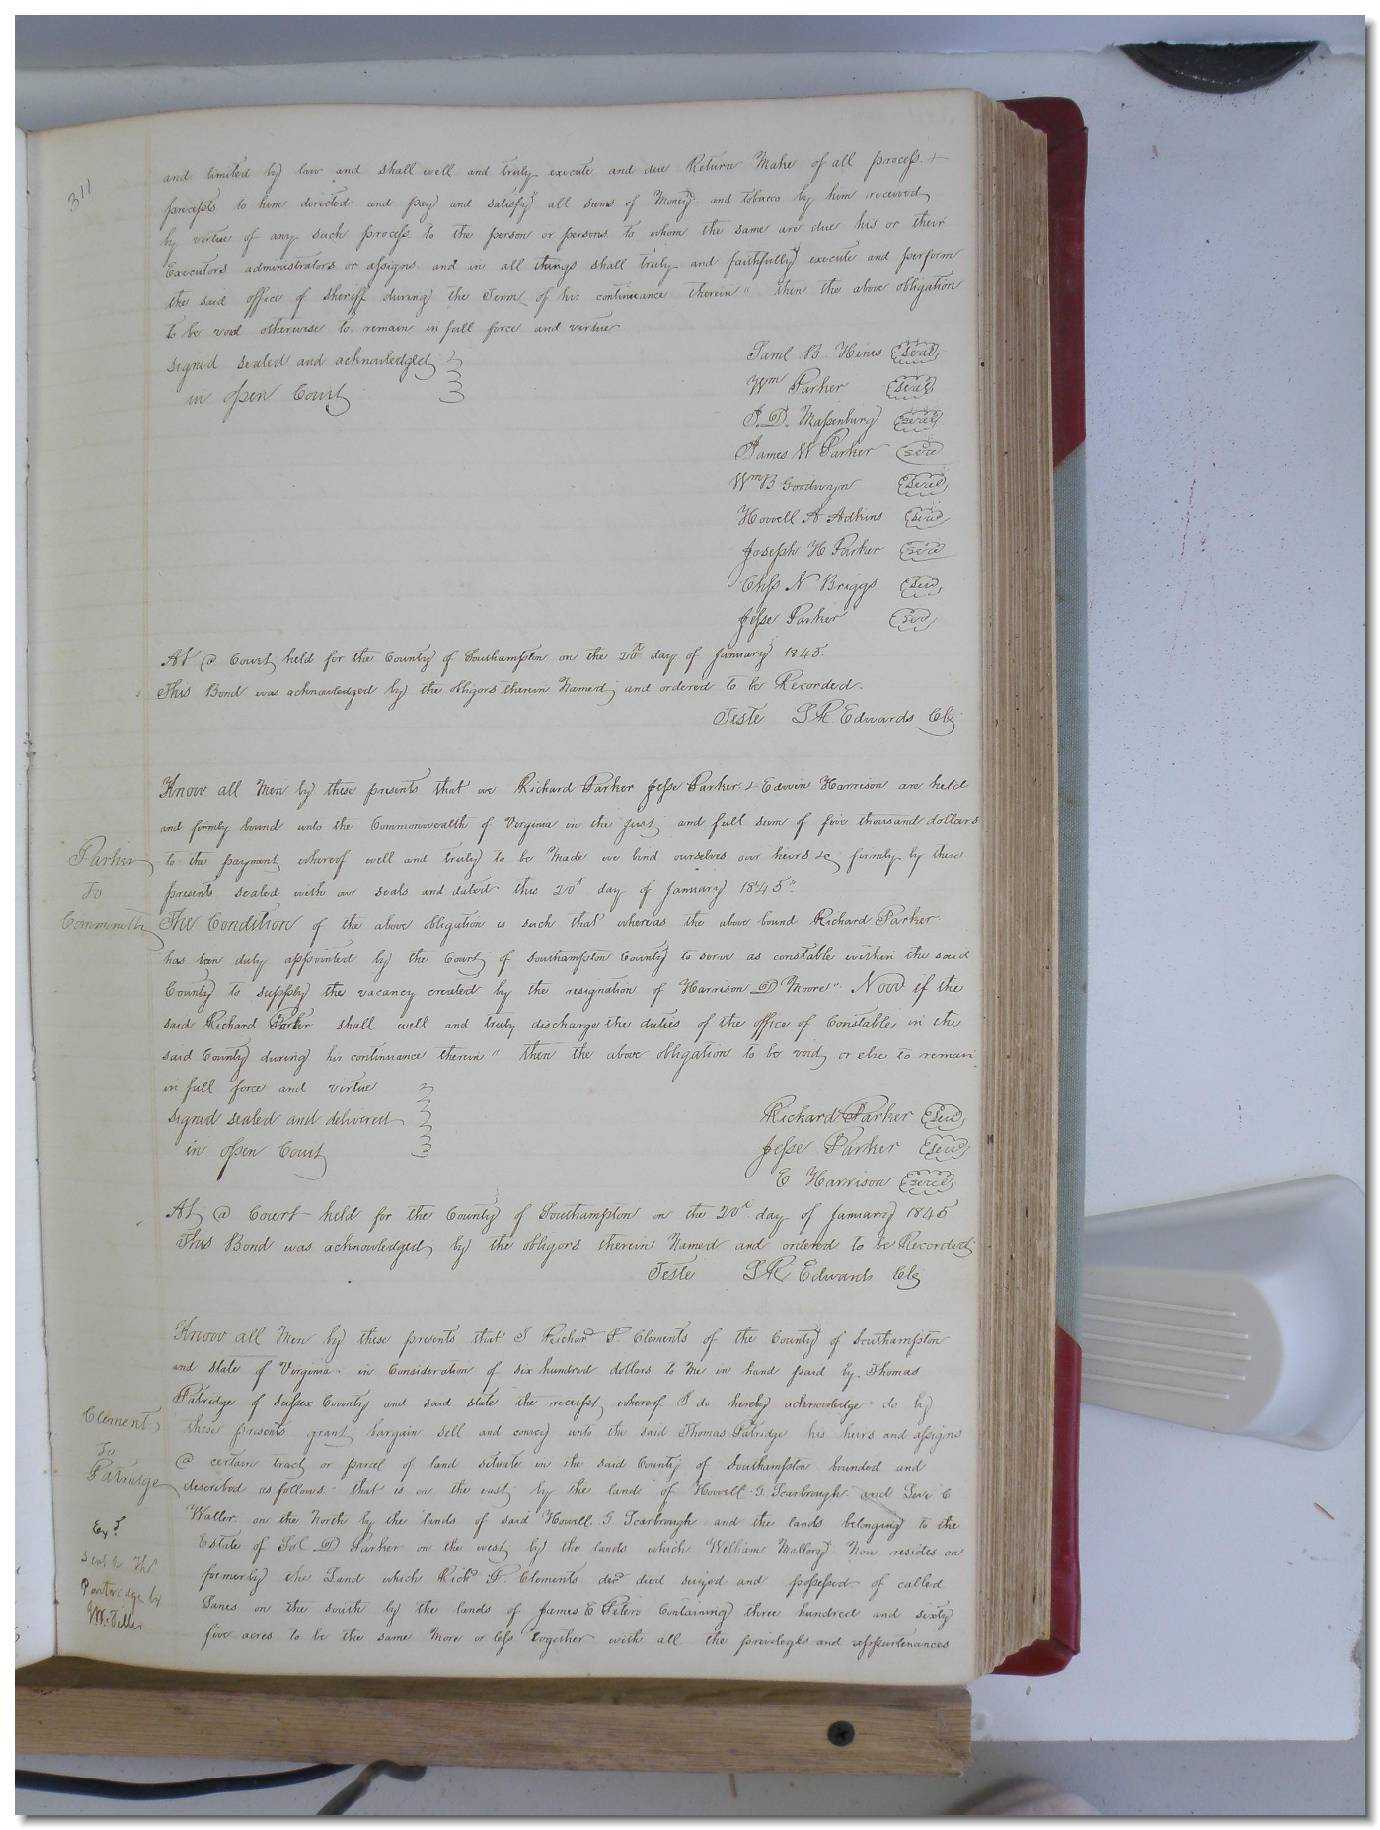 311
and limited by law and shall well and truly execute and due Return Make of all process +
precepts to him directed and pay and satisfy all sums of Money and tobacco by him received
by virtue of any such process to the person or persons to whom the same are due his or their
Executors administrators or assigns and in all things shall truly and faithfully execute and perform
the said office of sheriff during the Term of his continuance therein" then the above obligation
to be void otherwise to remain in full force and virtue
signed sealed and acknowledged
in open Court
Saml B. Hines seal
Wm Parker seal
J. D. Massenburg seal
James W Parker seal
Wm B Goodwyn seal
Howell A Adkins seal
Joseph H Parker seal
Chss N Briggs seal
Jesse Parker seal
At @ Court held for the County of Southampton on the 20th day of January 1845.
This Bond was acknowledged by the obligors therein Named and ordered to be Recorded.
Teste L R Edwards Clk
Know all Men by these presents that we Richard Parker Jesse Parker + Edwin Harrison are held
and firmly bound unto the Commonwealth of Virginia in the just and full sum of five thousand dollars
Parker
to
Commonwlth
to the payment whereof well and truly to be Made we bind ourselves our heirs &c firmly by these
presents sealed with our seals and dated this 20t day of January 1845"
The Condition of the above obligation is such that whereas the above bound Richard Parker
has been duly appointed by the Court of Southampton County to serve as constable within the said
County to supply the vacancy created by the resignation of Harrison D Moore". Now if the
said Richard Parker shall well and truly discharge the duties of the office of Constable in the
said County during his continuance therein" then the above obligation to be void or else to remain
in full force and virtue
signed sealed and delivered
in open Court
Richard Parker seal
Jesse Parker seal
E Harrison seal
At @ Court held for the County of Southampton on the 20t day of January 1845
This Bond was acknowledged by the obligors therein Named and ordered to be Recorded
Teste L R Edwards Clk
Know all Men by these presents that I Richard F Clements of the County of Southampton
and state of Virginia in Consideration of six hundred dollars to Me in hand paid by Thomas
Patridge of Sussex County and said state the receipt whereof I do hereby acknowledge do by
Clements
To
Patridge
these presents grant bargain sell and convey unto the said Thomas Patridge his heirs and assigns
@ certain tract or parcel of land situate in the said County of Southampton bounded and
described as follows that is on the east by the lands of Howell G. Scarbrough and C
Waller on the North by the lands of said Howell G. Scarbrough and the lands belonging to the
Exd
sent to Ths
Partridge by
Estate of D Parker on the west by the lands which William Mallory Now resides on
formerly the Land which Richd F. Clements decd died seized and possessed of called
Lanes on the south by the lands of James E Peters Containing three hundred and sixty
five acres to be the same More or less together with all the privileges and appurtenances